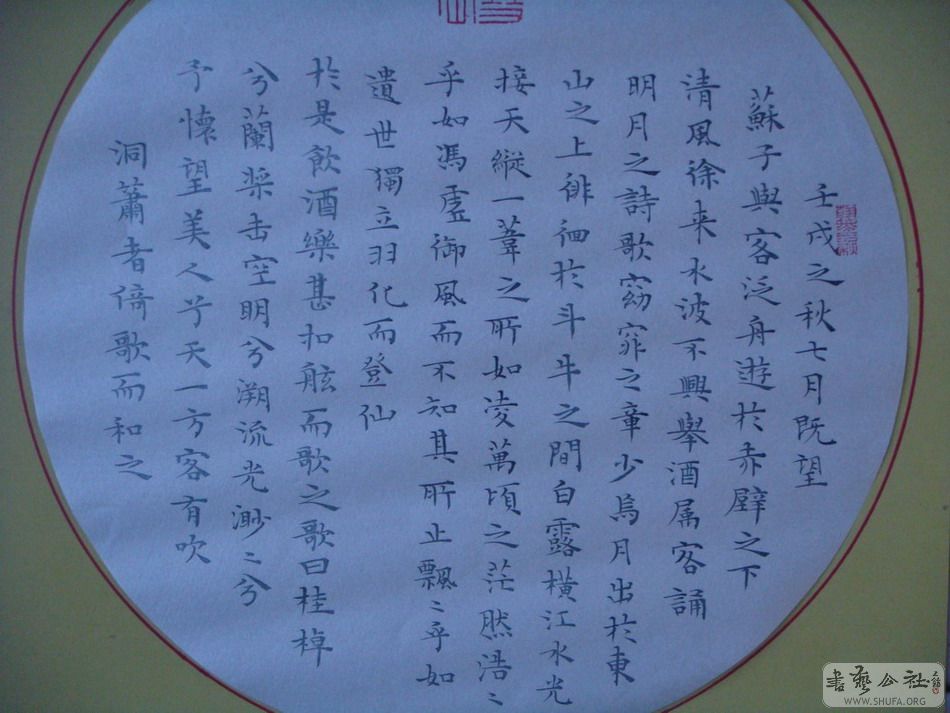 壬戌之秋七月既望
蘇子與客泛舟遊於赤壁之下
清風徐来水波不興舉酒属客誦
明月之詩歌窈窕之章少焉月出於東
山之上徘徊於斗牛之間白露橫江水光
接天縱一葦之所如凌萬頃之茫然浩〻
乎如馮虛御風而不知其所止飄〻乎如
遺世獨立羽化而登仙
於是飲酒樂甚扣舷而歌之歌曰桂棹
兮蘭槳击空明兮溯流光渺〻兮
予懷望美人兮天一方客有吹
洞蕭者倚歌而和之
書藝公社
WWW.SHUFA.ORG